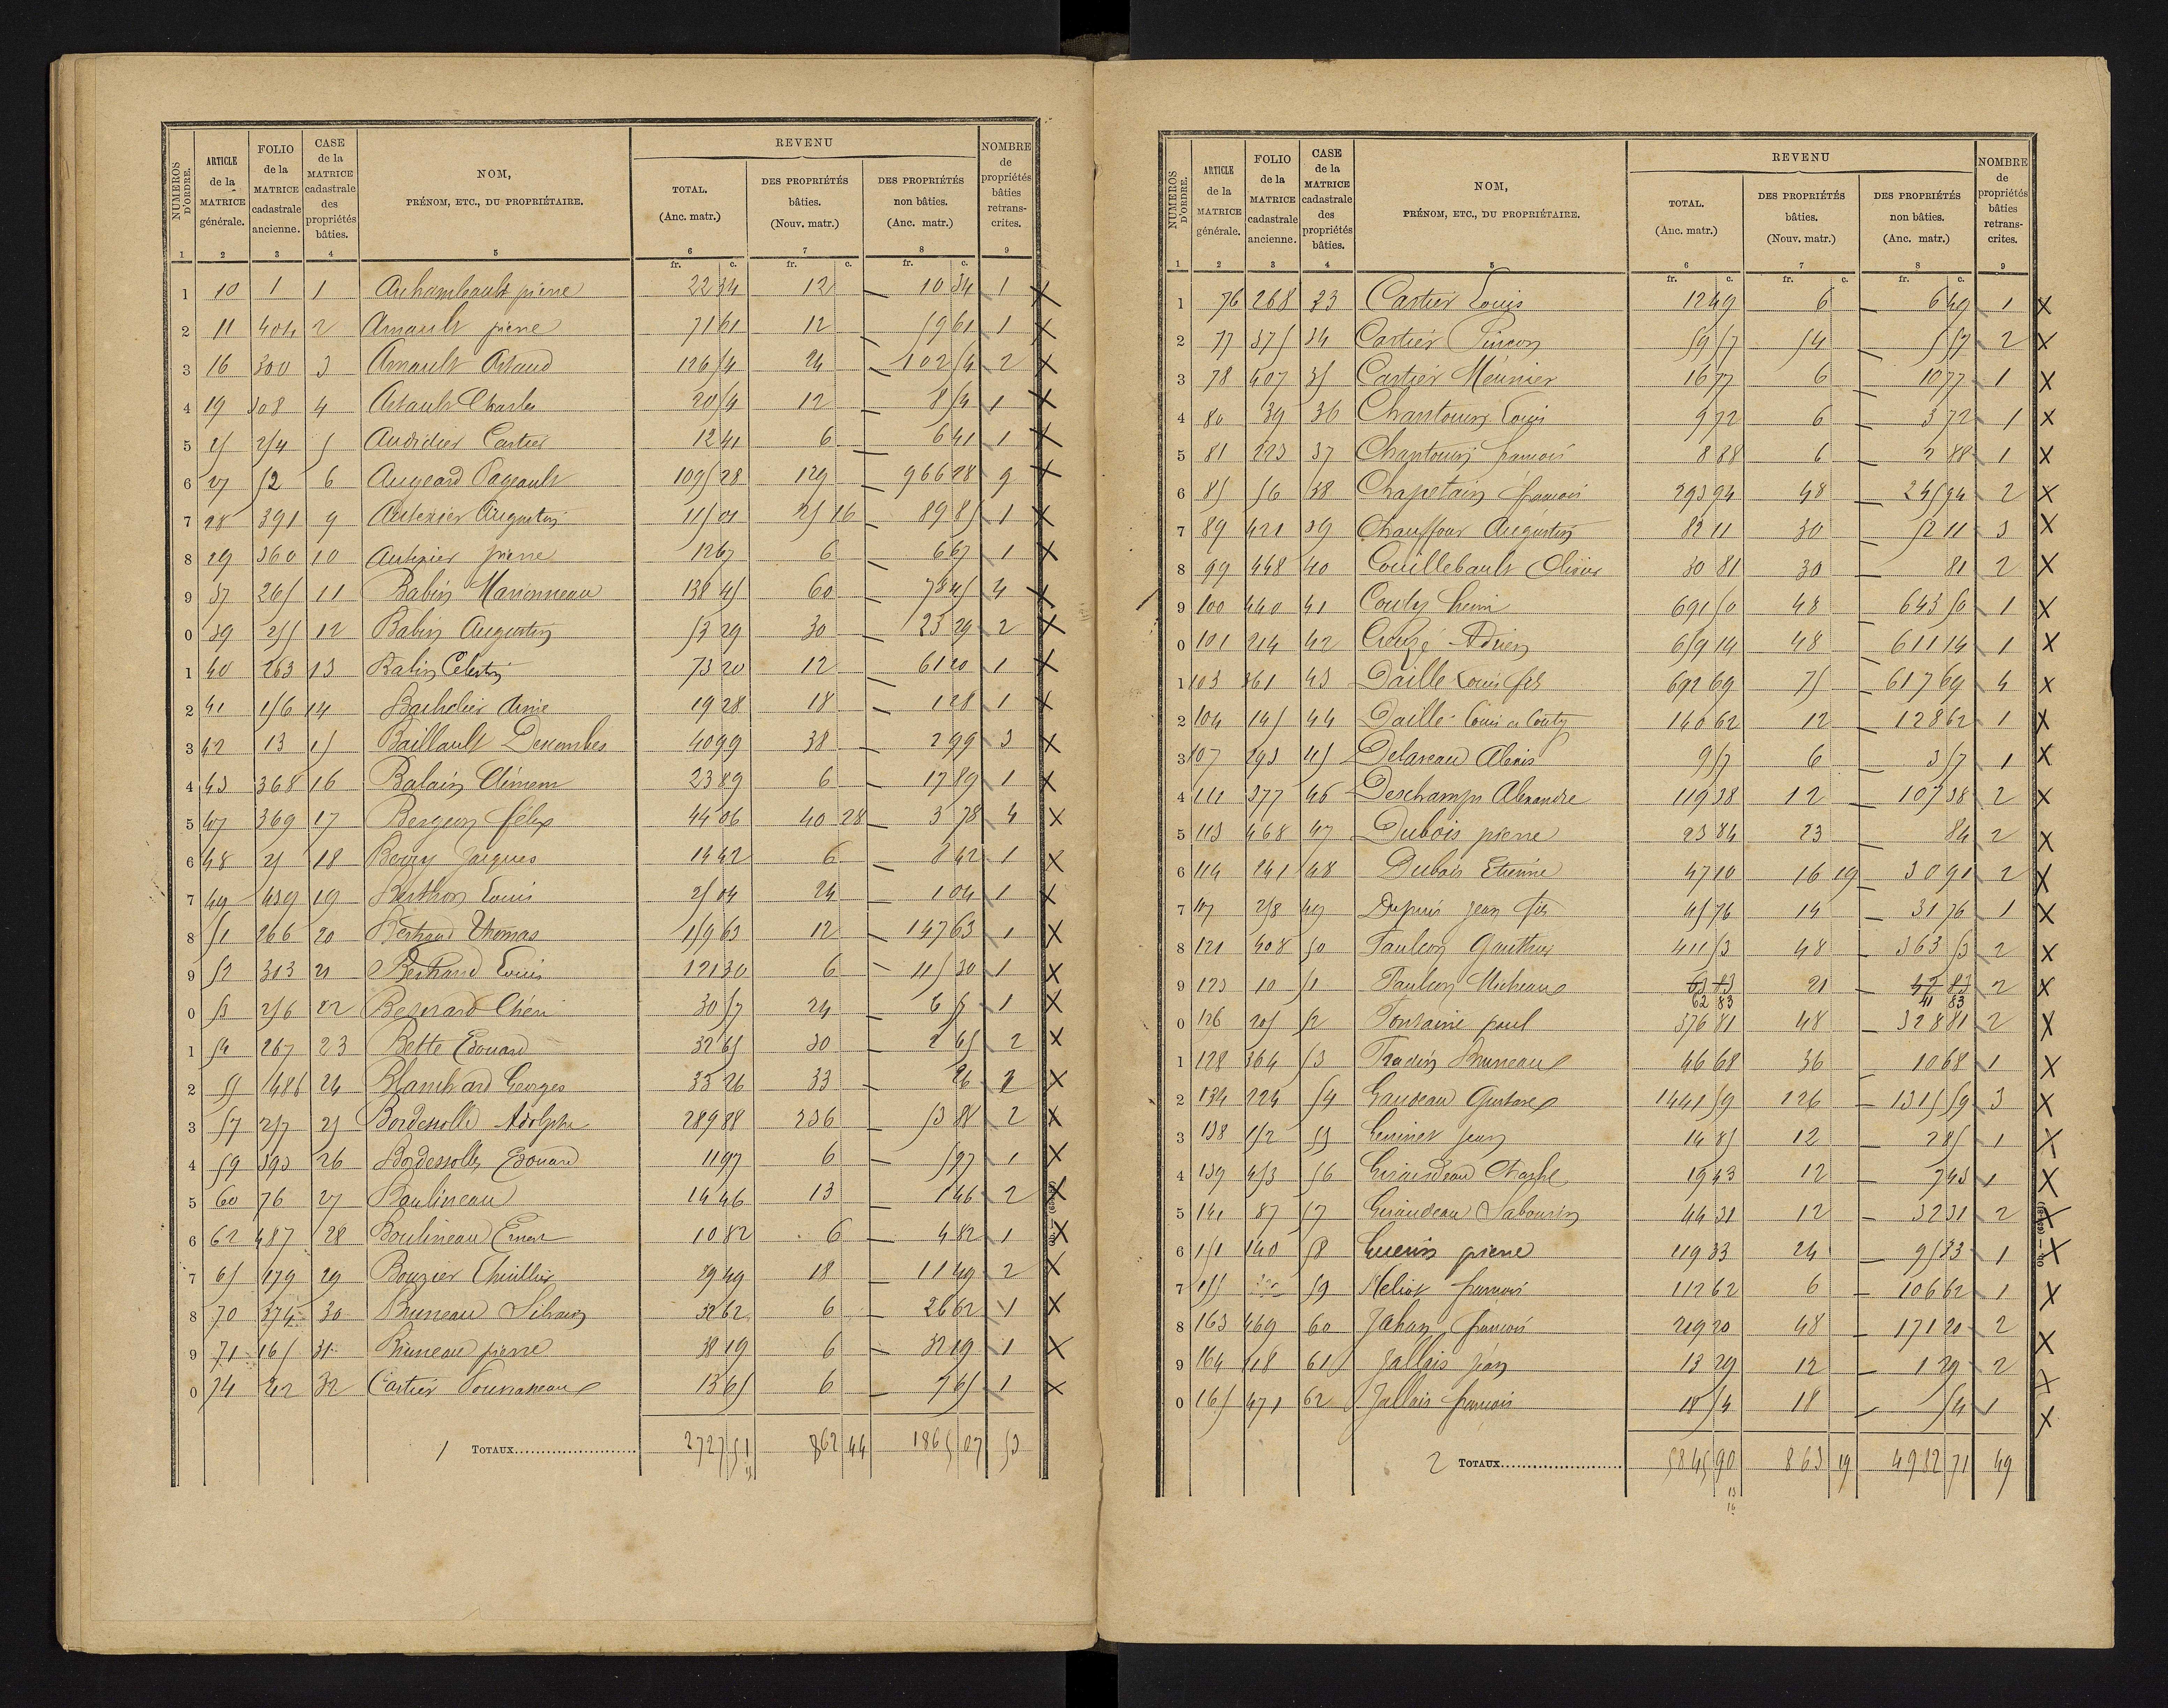 NUMÉROS D'ORDRE. | ARTICLE de la MATRICE générale. | FOLIO de la MATRICE cadastrale ancienne. | CASE de la MATRICE cadastrale des propriétés bâties. | NOM, PRÉNOM, ETC., DU PROPRIÉTAIRE. | REVENU TOTAL. (Anc. matr.) | DES PROPRIÉTÉS bâties. (Nouv. matr.) | DES PROPRIÉTÉS non bâties. (Anc. matr.) | NOMBRE de propriétés bâties retranscrites.
1 2 3 4 5 6 7 8 9
fr. c. fr. c. fr. c.
1 10 1 1 Archambault pierre 22 34 12 — 10 34 1 X
2 11 404 2 Arnault pierre 71 61 12 — 59 61 1 X
3 16 300 3 Arnault Artaud 126 54 24 — 102 54 2 X
4 19 308 4 Artault Charles 20 54 12 — 8 54 1 X
5 25 254 5 Audidier Cartier 12 41 6 — 6 41 1 X
6 27 52 6 Augeard Pageault 1095 28 129 — 966 28 9 X
7 28 391 9 Autexier Augustin 115 01 25 16 — 89 85 1 X
8 29 360 10 Autexier pierre 12 67 6 — 6 67 1 X
9 37 265 11 Babin Marionneau 138 45 60 — 78 45 4 X
0 39 255 12 Babin Augustin 53 29 30 — 23 29 2 X
1 40 263 13 Babin Célestin 73 20 12 — 61 20 1 X
2 41 156 14 Bachelier Aimé 19 28 18 — 1 28 1 X
3 42 13 15 Baillault Descombes 40 99 38 — 2 99 3 X
4 43 368 16 Balain Clément 23 89 6 — 17 89 1 X
5 47 369 17 Bergeon félix 44 06 40 28 — 3 78 4 X
6 48 25 18 Berry Jacques 14 42 6 — 8 42 1 X
7 49 439 19 Berthon Louis 25 04 24 — 1 04 1 X
8 51 266 20 Bertrand Thomas 159 63 12 — 147 63 1 X
9 52 313 21 Bertrand Louis 121 30 6 — 115 30 1 X
0 53 256 22 Besnard Chéri 30 57 24 — 6 57 1 X
1 54 267 23 Bette Edouard 32 65 30 — 2 65 2 X
2 55 486 24 Blanchard Georges 33 26 33 — 26 2 X
3 57 257 25 Bordesolle Adolphe 289 88 236 — 53 88 2 X
4 59 393 26 Bordessolle Edouard 11 97 6 — 5 97 1 X
5 60 76 27 Boulineau 14 46 13 — 1 46 2 X
6 62 487 28 Boulineau Ernest 10 82 6 — 4 82 1 X
7 65 179 29 Bouzier Thuillier 29 49 18 — 11 49 2 X
8 70 374 30 Bruneau Silvain 32 62 6 — 26 62 1 X
9 71 165 31 Bruneau pierre 38 19 6 — 32 19 1 X
0 74 242 32 Cartier 13 65 6 — 7 65 1 X
1 TOTAUX 2727 51 862 44 1865 07 53
NUMÉROS D'ORDRE. | ARTICLE de la MATRICE générale. | FOLIO de la MATRICE cadastrale ancienne. | CASE de la MATRICE cadastrale des propriétés bâties. | NOM, PRÉNOM, ETC., DU PROPRIÉTAIRE. | REVENU TOTAL. (Anc. matr.) | DES PROPRIÉTÉS bâties. (Nouv. matr.) | DES PROPRIÉTÉS non bâties. (Anc. matr.) | NOMBRE de propriétés bâties retranscrites.
1 2 3 4 5 6 7 8 9
fr. c. fr. c. fr. c.
1 76 268 33 Cartier Louis 12 49 6 — 6 49 1 X
2 77 375 34 Cartier Pinson 59 57 54 — 5 57 2 X
3 78 407 35 Cartier Meunier 16 77 6 — 10 77 1 X
4 80 39 36 Chantouin Louis 9 72 6 — 3 72 1 X
5 81 223 37 Chantouin françois 8 88 6 — 2 88 1 X
6 85 56 38 Chapetain françois 293 94 48 — 245 94 2 X
7 89 421 39 Chauffour Augustin 82 11 30 — 52 11 3 X
8 99 448 40 Couillebault Olivier 30 81 30 — 81 2 X
9 100 440 41 Couty henri 691 50 48 — 643 50 1 X
0 101 214 42 Creuzé Adrien 659 14 48 — 611 14 1 X
1 103 361 43 Daille Louis fils 692 69 75 — 617 69 4 X
2 104 145 44 Daille Louis et Couty 140 62 12 — 128 62 1 X
3 107 293 45 Delareau Alexis 9 57 6 — 3 57 1 X
4 111 377 46 Deschamps Alexandre 119 38 12 — 107 38 2 X
5 113 468 47 Dubois pierre 23 84 23 — 84 2 X
6 114 241 48 Dubois Etienne 47 10 16 19 — 30 91 2 X
7 117 258 49 Dupuis Jean fils 45 76 14 — 31 76 1 X
8 121 408 50 Faulcon Gauthier 411 53 48 — 363 53 2 X
9 123 10 51 Faulcon Micheau 63 83 62 83 21 — 42 83 41 83 2 X
0 126 205 52 Fontaine paul 376 81 48 — 328 81 2 X
1 128 364 53 Fradin Bruneau 46 68 36 — 10 68 1 X
2 134 224 54 Gaudeau Gustave 1441 59 126 — 1315 59 3 X
3 138 152 55 Geminet Jean 14 85 12 — 2 85 1 X
4 139 453 56 Giraudeau Charles 19 43 12 — 7 43 1 X
5 141 87 57 Giraudeau Sabourin 44 31 12 — 32 31 2 X
6 151 140 58 Guerin pierre 119 33 24 — 95 33 1 X
7 155 59 Heliot françois 112 62 6 — 106 62 1 X
8 163 469 60 Jahan françois 219 20 48 — 171 20 2 X
9 164 118 61 Jallais Jean 13 29 12 — 1 29 2 X
0 165 471 62 Jallais françois 18 54 18 — 54 1 X
2 TOTAUX 5845 90 863 19 4982 71 49